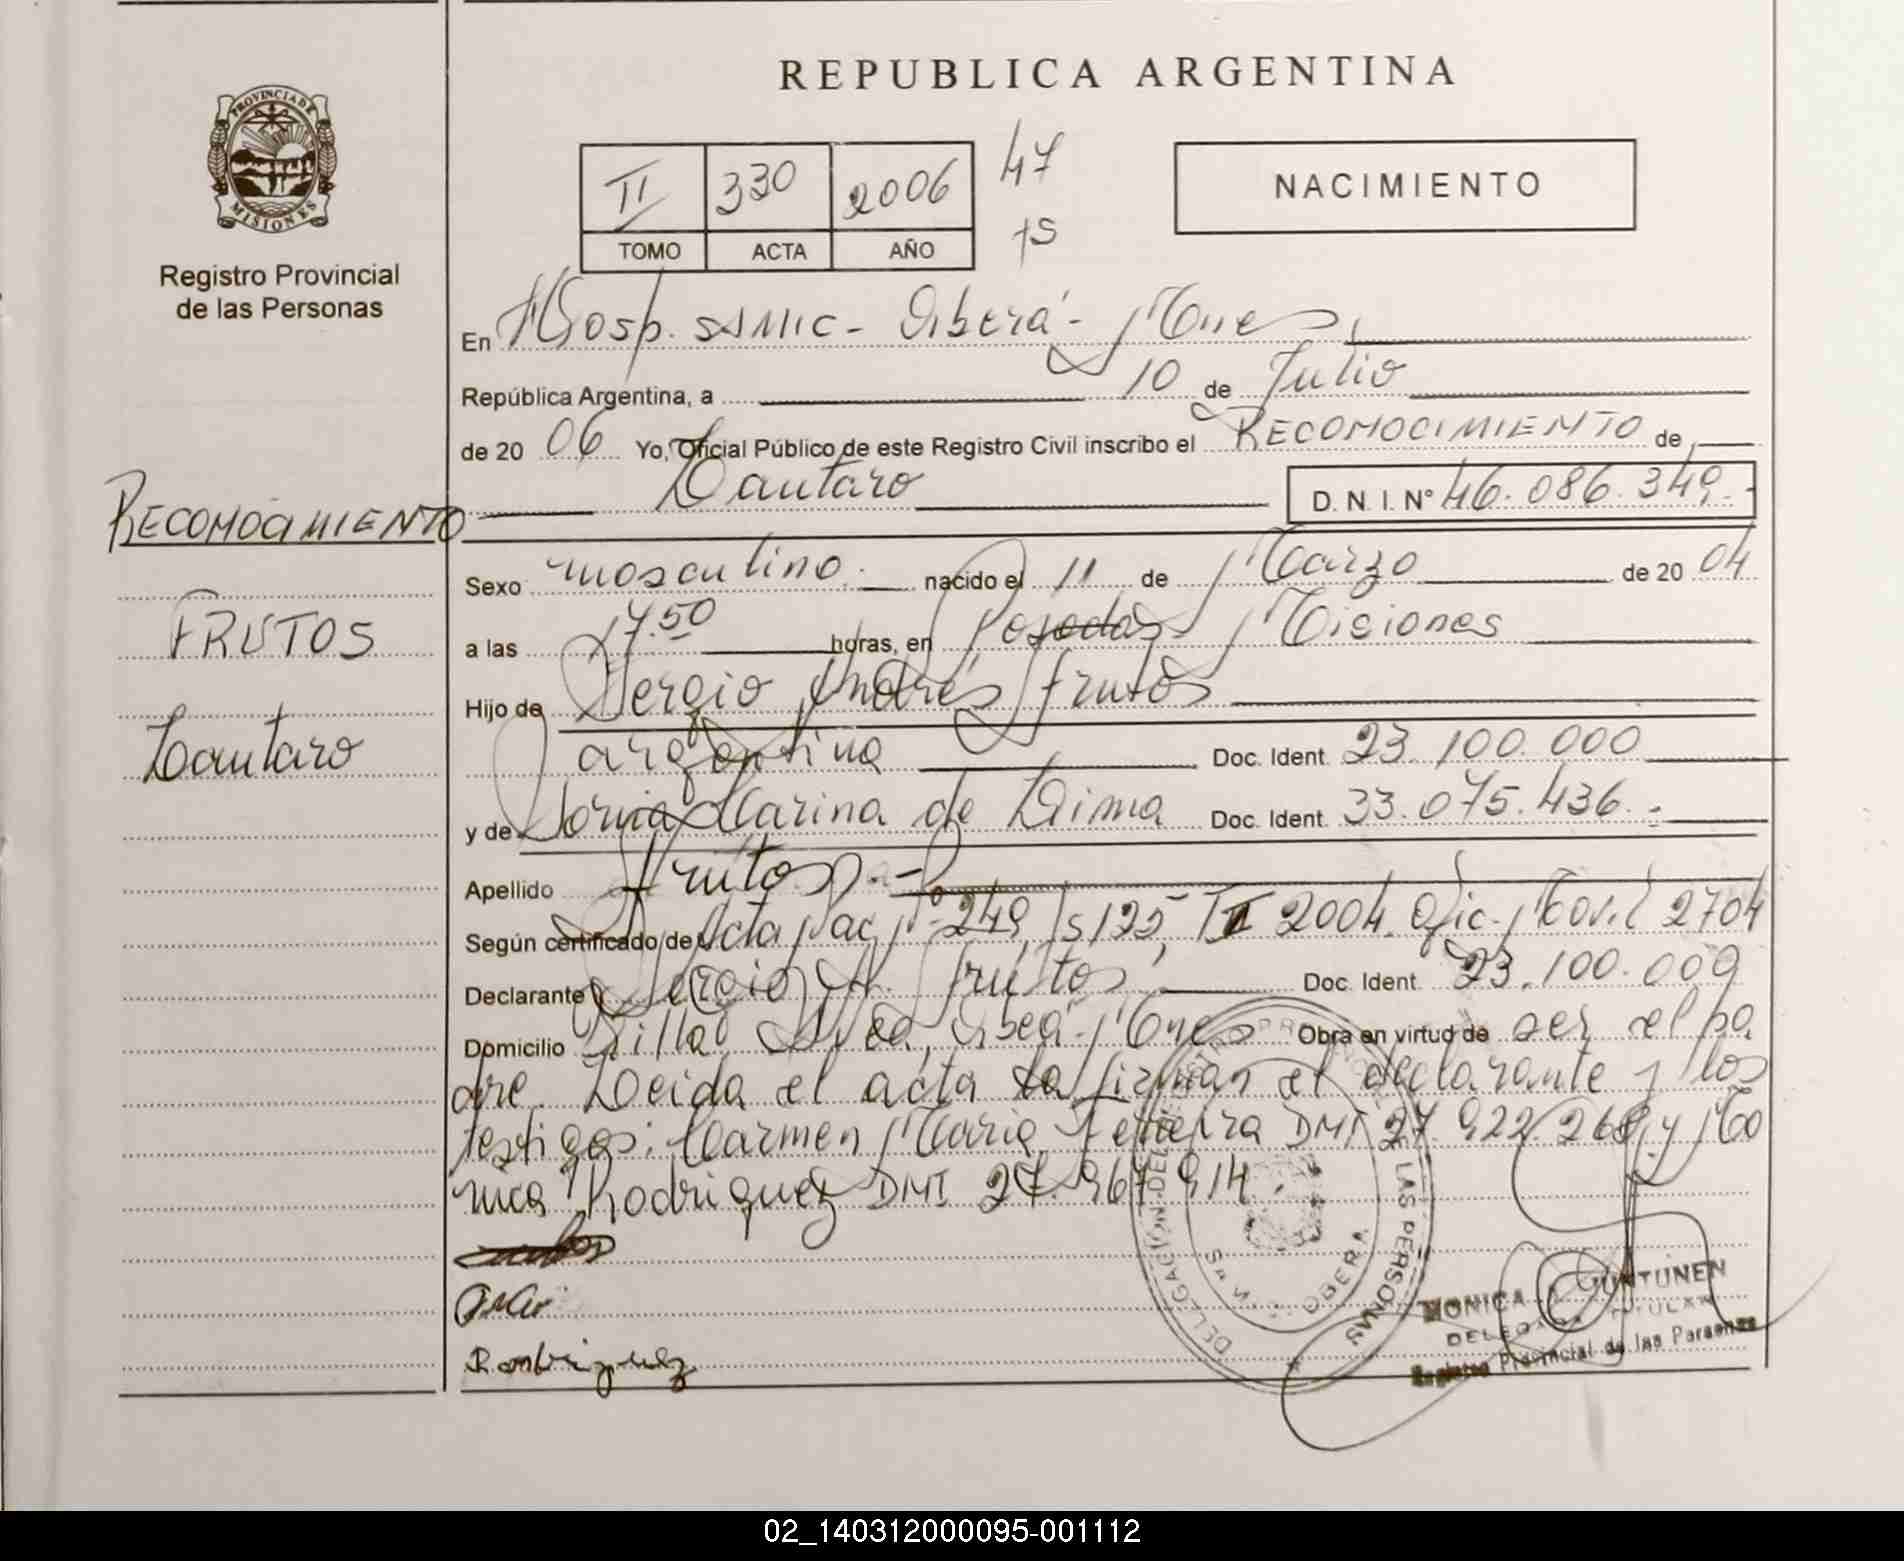 PROVINCIA DE
MISIONES
Registro Provincial
de las Personas
REPUBLICA ARGENTINA
II 330 2006
TOMO ACTA AÑO
47
NACIMIENTO
En Hosp. SAMIC - Oberá - Mnes
República Argentina, a 10 de Julio
de 2006 Yo, Oficial Público de este Registro Civil inscribo el RECONOCIMIENTO de
Lautaro D. N. I. Nº 46.086.349.-
RECONOCIMIENTO
FRUTOS
Lautaro
Sexo masculino. nacido el 11 de Marzo de 2004
a las 17.50 horas, en Posadas Misiones
Hijo de Sergio Andrés Frutos
argentina Doc. Ident. 23.100.000
y de Sonia Karina de Lima Doc. Ident. 33.075.436.-
Apellido Frutos.-
Según certificado de Acta Nac Nº 249, Fs 125, T II 2004. Ofic. Móvil 2704
Declarante Sergio A. Frutos, Doc. Ident. 23.100.009
Domicilio Villa Oberá - Mnes Obra en virtud de ser el pa
dre. Leida el acta la firman el declarante y los
testigos: Carmen Maria Ferreira DNI 27.922.268, y Mo
nica Rodriguez DNI 27.967.914.
Rodriguez
DELEGACION DEL REGISTRO PROVINCIAL DE LAS PERSONAS
OBERA
MONICA JUNTUNEN
DELEGADA TITULAR
Registro Provincial de las Personas
02_140312000095-001112